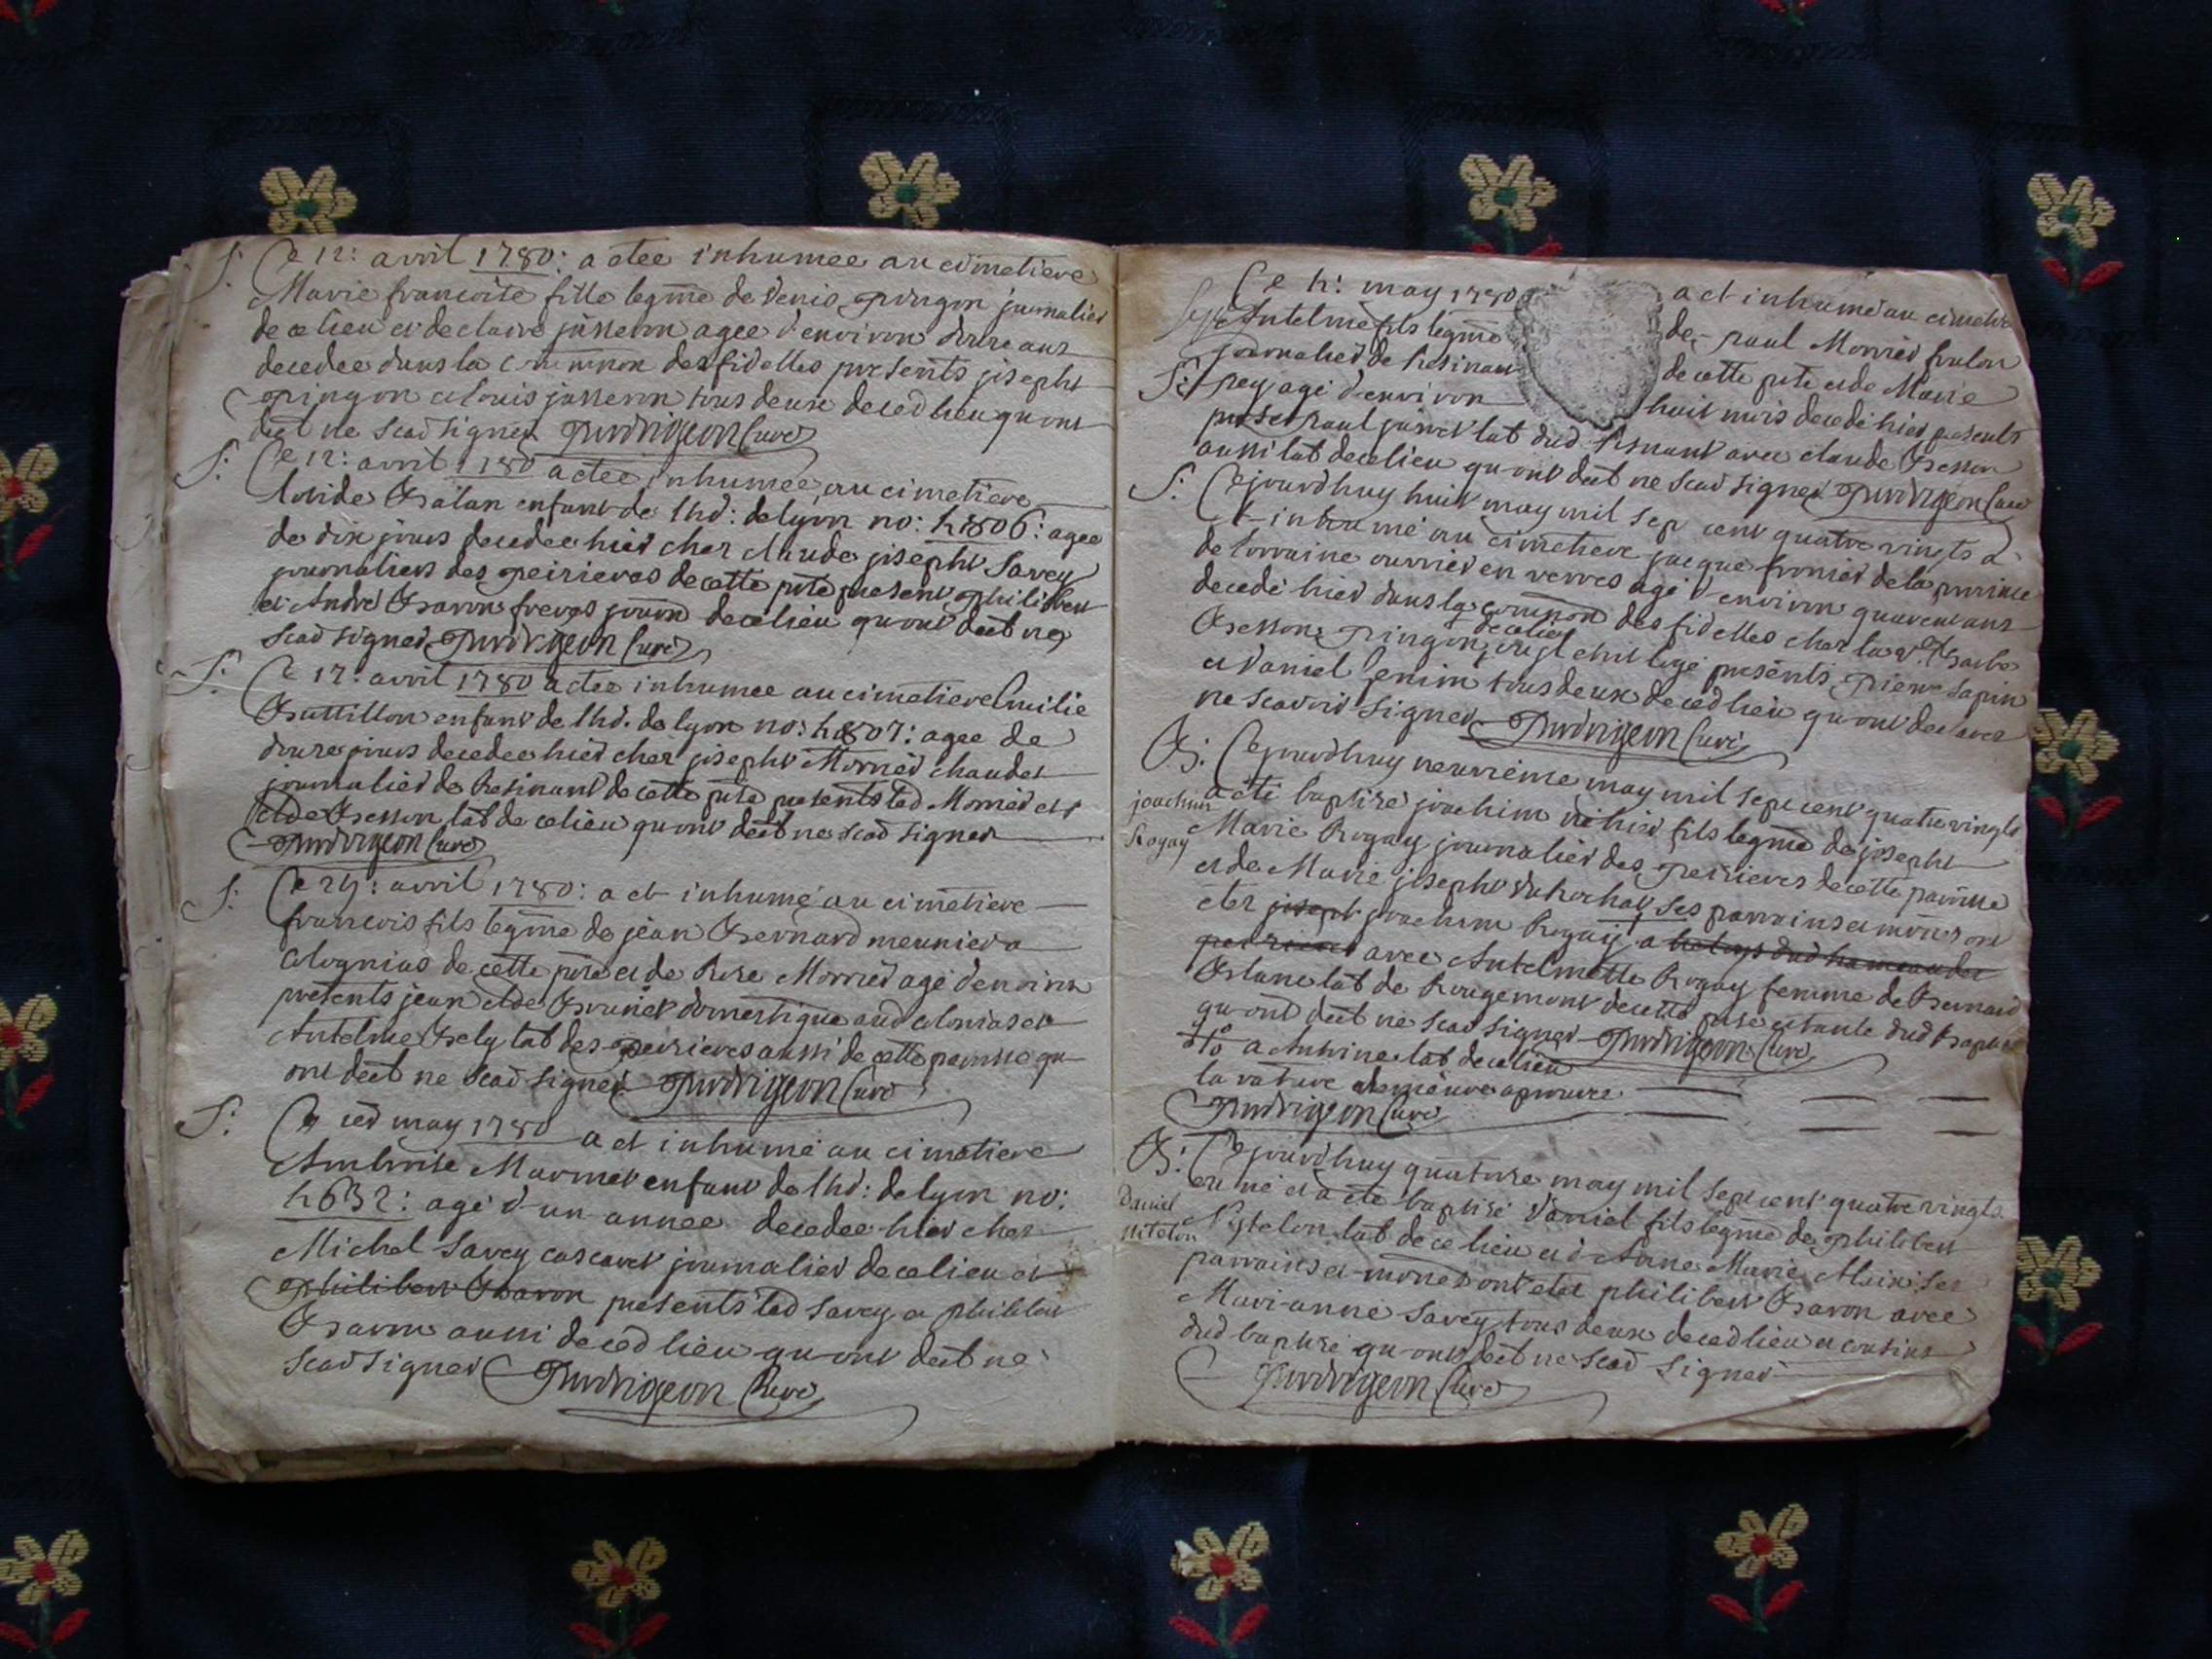 S: Ce 12: avril 1780: a etee inhumee au cimetiere
Marie francoise fille legme de Denis pingon journalier
de ce lieu et de claire jusseron agee d'environ douze ans
decedee dans la des fidelles presents joseph
pingon et louis jusseron tous deux decedlieu quont
declt ne scad signer Curé
S: Ce 12: avril 1780 a etee inhumee au cimetiere
Balan enfant de lhd: de lyon no: 41806: agee
de dix jours decedee hier chez claude joseph Savey
journaliers des peirieres de cette psse present philibert
et André Baron freres journ de ce lieu quont declt ne
scad signer Curé
S: Ce 17: avril 1780 a etee inhumee au cimetiere Emilie
Buttillon enfant de lhd. de lyon no: 41807: agee de
douze jours decedee hier chez joseph Morrier chaudet
journalier de Resinant de cette psse presents led Morrier et
clde Besson lab de ce lieu quont declt ne scad signer
Curé
S: Ce 24: avril 1780: a et inhumé au cimetiere
francois fils legme de jean Bernard meunier a
Colognias de cette psse et de Rose Morrier agé denviron
presents jean clde Brunet domestique aud colonias et
Antelme Bely lab des peirieres aussi de cette paroisse qu
ont declt ne scad signer Curé
S: Ce 1er may 1780 a et inhumé au cimetiere
Ambroise Marmet enfant de lhd: de lyon no:
4632: agé d'un annee decedee hier chez
Michel Savey cascaret journalier de ce lieu et
philibert Baron presents led Savey et philibert
Baron aussi decedlieu quont declt ne
scad signer Curé
Ce 4: may 1780 a et inhumé au cimetiere
Antelme fils legme de paul Morrier
journalier de Resinant de cette psse et de Marie
S: pey agé d'environ huit mois decedé hier presents
paul junet lab dud Resinant avec claude Besson
aussi lab de ce lieu quont declt ne scad signer Curé
S: Cejourdhuy huit may mil sept cent quatre vingts a
et inhumé au cimetiere jacque fronier de la province
de lorraine ouvrier en verres agé d'environ quarent ans
decedé hier dans la comnon des fidelles chez la ve Barbe
de ce lieu
Besson pingon, ou il etoit logé presents pierre Sapin
et Daniel Genin tous deux decedlieu quont declarer
ne scavoir signer Curé
B: Cejourdhuy neuvieme may mil sept cent quatre vingts
joachim
a été baptisé joachim né hier fils legme de joseph
Rogay
Marie Rogay journalier des peirieres de cette paroisse
et de Marie joseph ses parrains et mones ont
etez joseph joachim Rogay a
peirieres avec Antelmette Rogay femme de Bernard
lab de Rougemont de cette psse et tante dud baptisé
quont declt ne scad signer Curé
a Antoine lab de ce lieu
la rature approuvee
Curé
B: Cejourdhuy quatorze may mil sept cent quatre vingts
Daniel
né et a été baptisé Daniel fils legme de philibert
Nitelon
lab de ce lieu et d'Anne Marie ses
parrains et mones ont etez philibert Baron avec
Marianne Savey tous deux decedlieu et cousins
dud baptisé quont declt ne scad signer
Curé